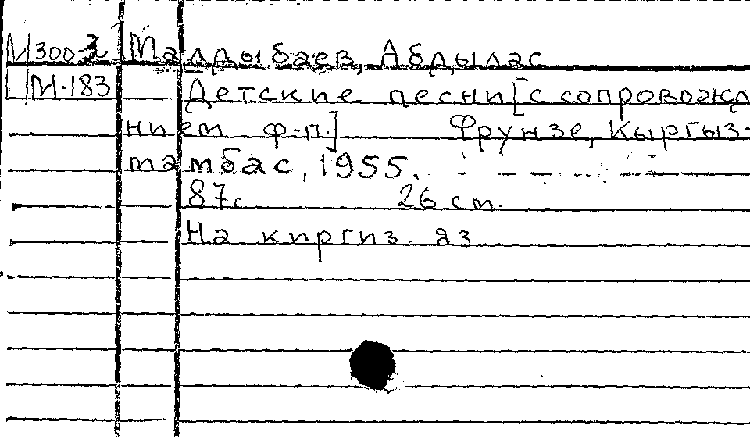 М300-3 Малдыбаев, Абдылас
М-183 Детские песни [с сопровожд
нием ф-п.] Фрунзе, Кыргыз-
тамбас, 1955.
87с. 26 см.
На киргиз. яз